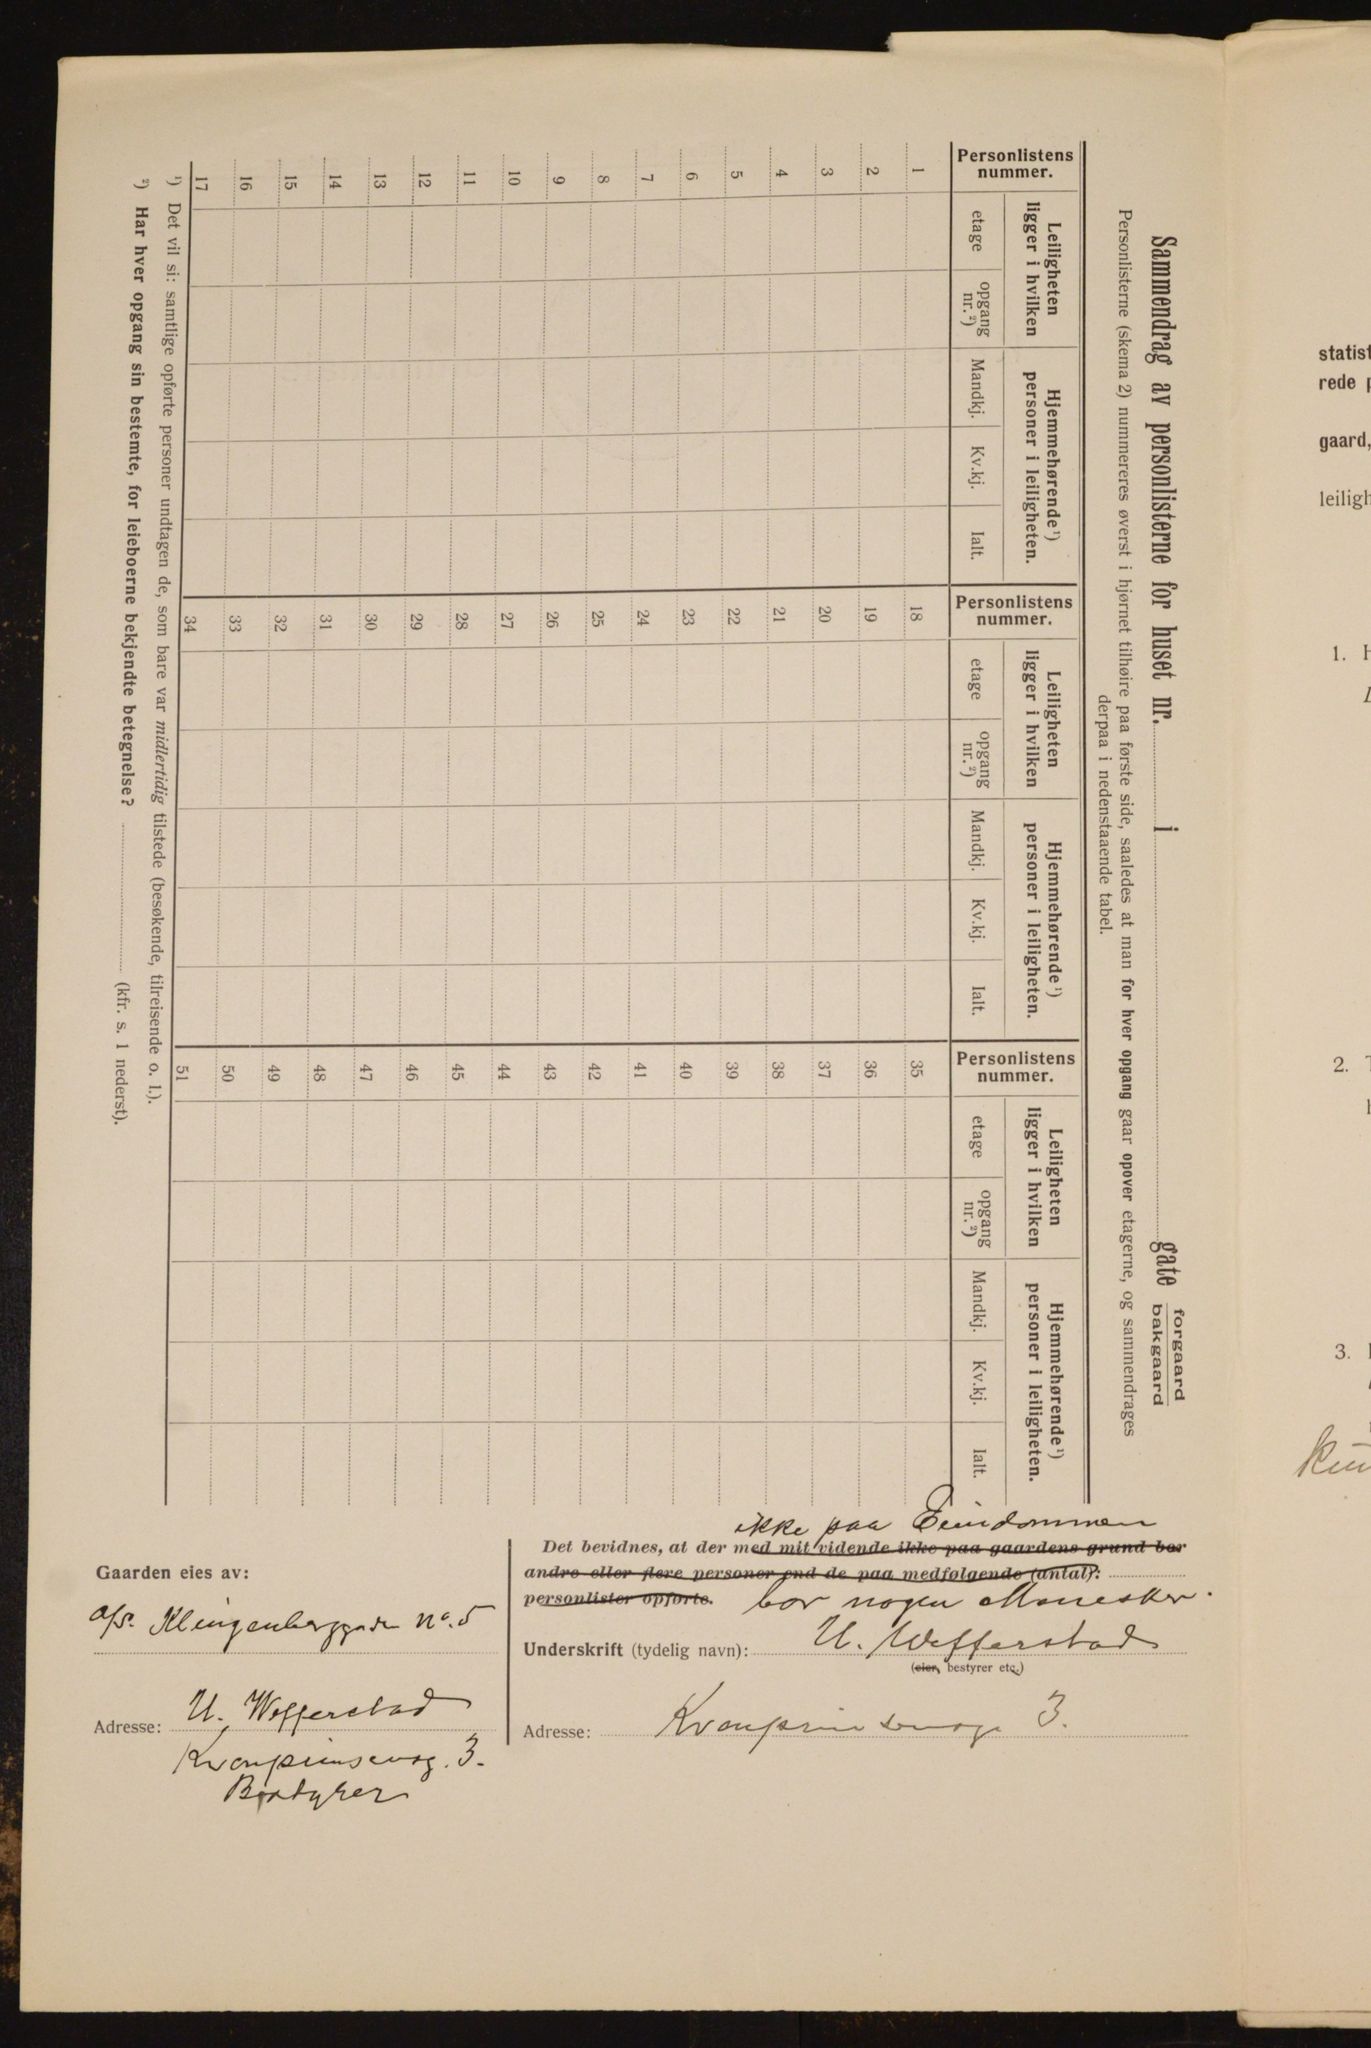 Sammendrag av personlisterne for huset nr. i gate forgaard
bakgaard
Personlisterne (skema 2) nummereres øverst i hjørnet tilhøire paa første side, saaledes at man for hver opgang gaar opover etagerne, og sammendrages
derpaa i nedenstaaende tabel.
Personlistens nummer. Leiligheten ligger i hvilken Hjemmehørende¹) personer i leiligheten. Personlistens nummer. Leiligheten ligger i hvilken Hjemmehørende¹) personer i leiligheten. Personlistens nummer. Leiligheten ligger i hvilken Hjemmehørende¹) personer i leiligheten.
etage opgang nr.²) Mandkj. Kv.kj. Ialt. etage opgang nr.²) Mandkj. Kv.kj. Ialt. etage opgang nr.²) Mandkj. Kv.kj. Ialt.
1 18 35
2 19 36
3 20 37
4 21 38
5 22 39
6 23 40
7 24 41
8 25 42
9 26 43
10 27 44
11 28 45
12 29 46
13 30 47
14 31 48
15 32 49
16 33 50
17 34 51
¹) Det vil si: samtlige opførte personer undtagen de, som bare var midlertidig tilstede (besøkende, tilreisende o. l.).
²) Har hver opgang sin bestemte, for leieboerne bekjendte betegnelse? (kfr. s. 1 nederst).
Gaarden eies av:
Klingenberggaden No. 5
Adresse: U. Wefferstad
Kronprinsensg. 3.
Bestyrer
ikke paa Eiendommen
Det bevidnes, at der med mit vidende ikke paa gaardens grund bor
andre eller flere personer end de paa medfølgende (antal):
personlister opførte. bor nogen Mennesker.
Underskrift (tydelig navn): U. Wefferstad
(eier, bestyrer etc.)
Adresse: Kronprinsensg. 3.
statist
rede p
gaard,
leiligh
1. H
2. T
3.